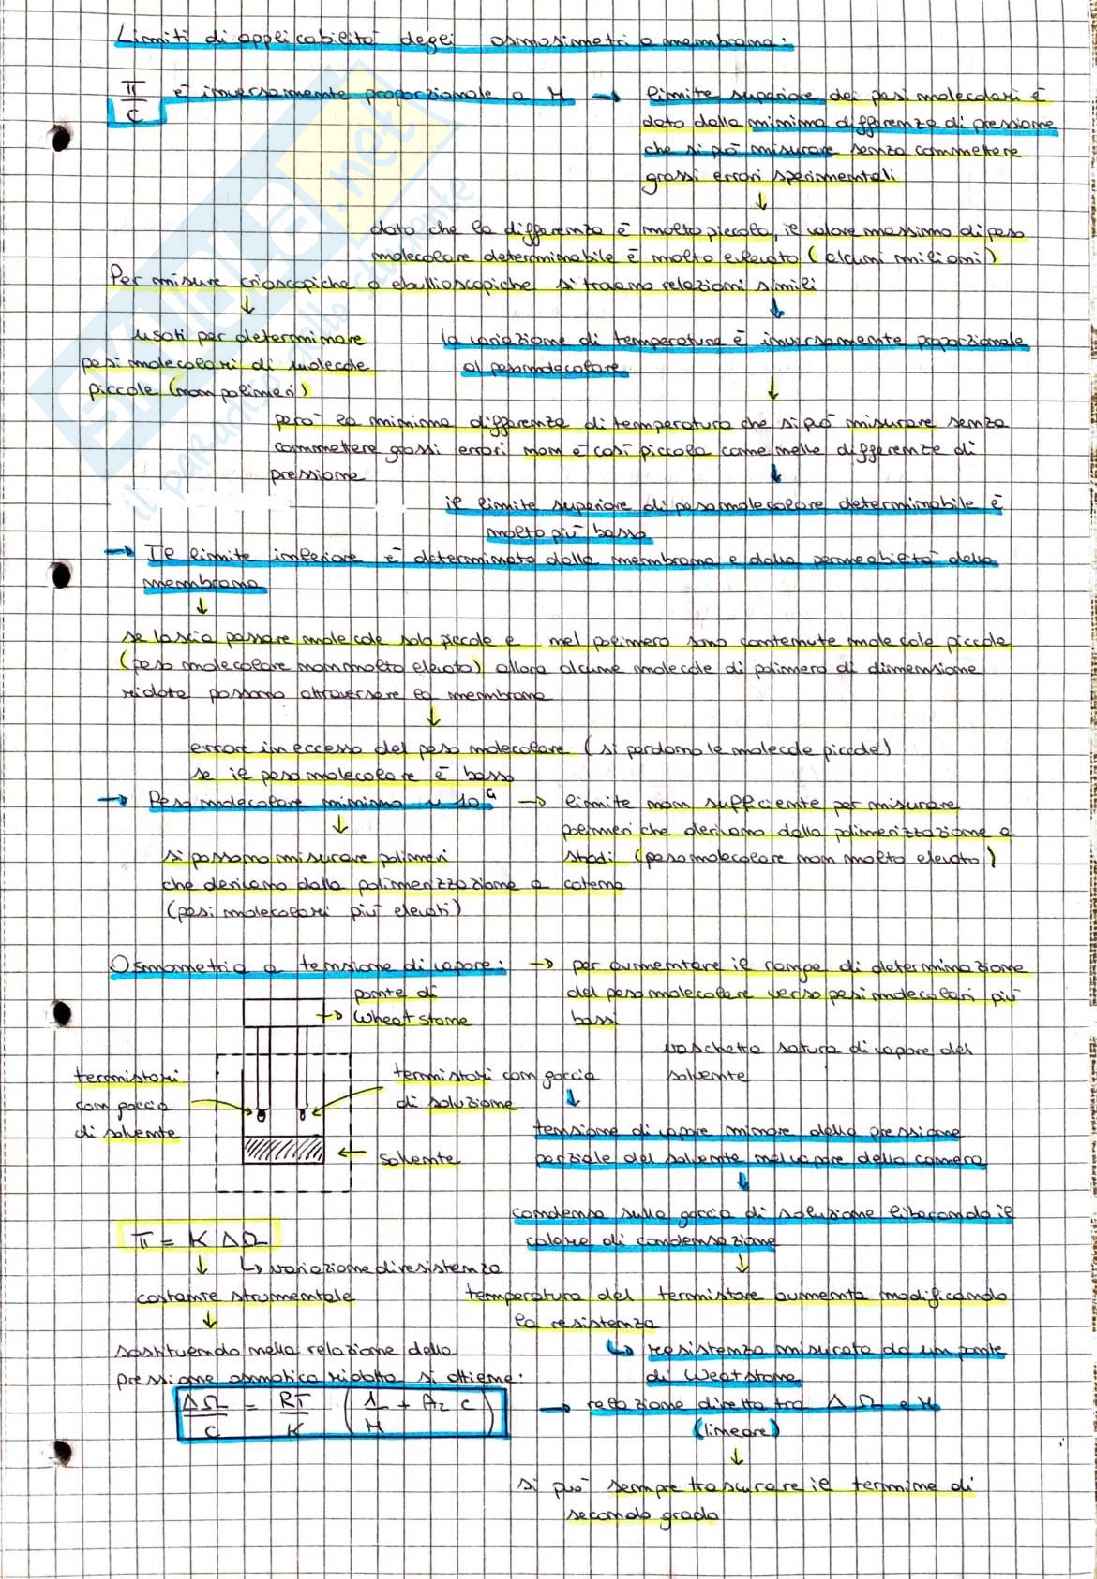 Limiti di applicabilità degli osmosimetri a membrana:
π/c è inversamente proporzionale a M → limite superiore dei pesi molecolari è
dato dalla minima differenza di pressione
che si può misurare senza commettere
grossi errori sperimentali
↓
dato che la differenza è molto piccola, il valore massimo di peso
molecolare determinabile è molto elevato (alcuni milioni)
Per misure crioscopiche o ebullioscopiche si traono relazioni simili
↓ ↓
usati per determinare
pesi molecolari di molecole
piccole (non polimeri)
la variazione di temperatura è inversamente proporzionale
al peso molecolare
↓
però la minima differenza di temperatura che si può misurare senza
commettere grossi errori non è così piccola come nelle differenze di
pressione
↓
il limite superiore di peso molecolare determinabile è
molto più basso
→ Il limite inferiore è determinato dalla membrana e dalla permeabilità della
membrana
↓
se lascia passare molecole solo piccole e nel polimero sono contenute molecole piccole
(peso molecolare non molto elevato) allora alcune molecole di polimero di dimensione
ridotte possono attraversare la membrana
↓
errore in eccesso del peso molecolare (si perdono le molecole piccole)
se il peso molecolare è basso
→ Peso molecolare minimo ~ 10⁴ → limite non sufficiente per misurare
polimeri che derivano dalla polimerizzazione a
stadi (peso molecolare non molto elevato)
↓
si possono misurare polimeri
che derivano dalla polimerizzazione a catena
(pesi molecolari più elevati)
Osmometria a tensione di vapore: → per aumentare il range di determinazione
del peso molecolare verso pesi molecolari più
bassi
ponte di
→ Wheatstone
vaschetta satura di vapore del
solvente
termistori
con goccia
di solvente
termistori con goccia
di soluzione
← solvente
↓
tensione di vapore minore della pressione
parziale del solvente nel vapore della camera
↓
condensa sulla goccia di soluzione liberando il
calore di condensazione
↓
temperatura del termistore aumenta modificando
la resistenza
↳ resistenza misurata da un ponte
di Weatstone
π = K ΔΩ
↓ ↳ variazione di resistenza
costante strumentale
↓
sostituendo nella relazione della
pressione osmotica ridotta si ottiene:
ΔΩ/c = RT/K (1/M + A₂ c) → relazione diretta tra ΔΩ e M
(lineare)
↓
si può sempre trascurare il termine di
secondo grado
SKUOLA.net